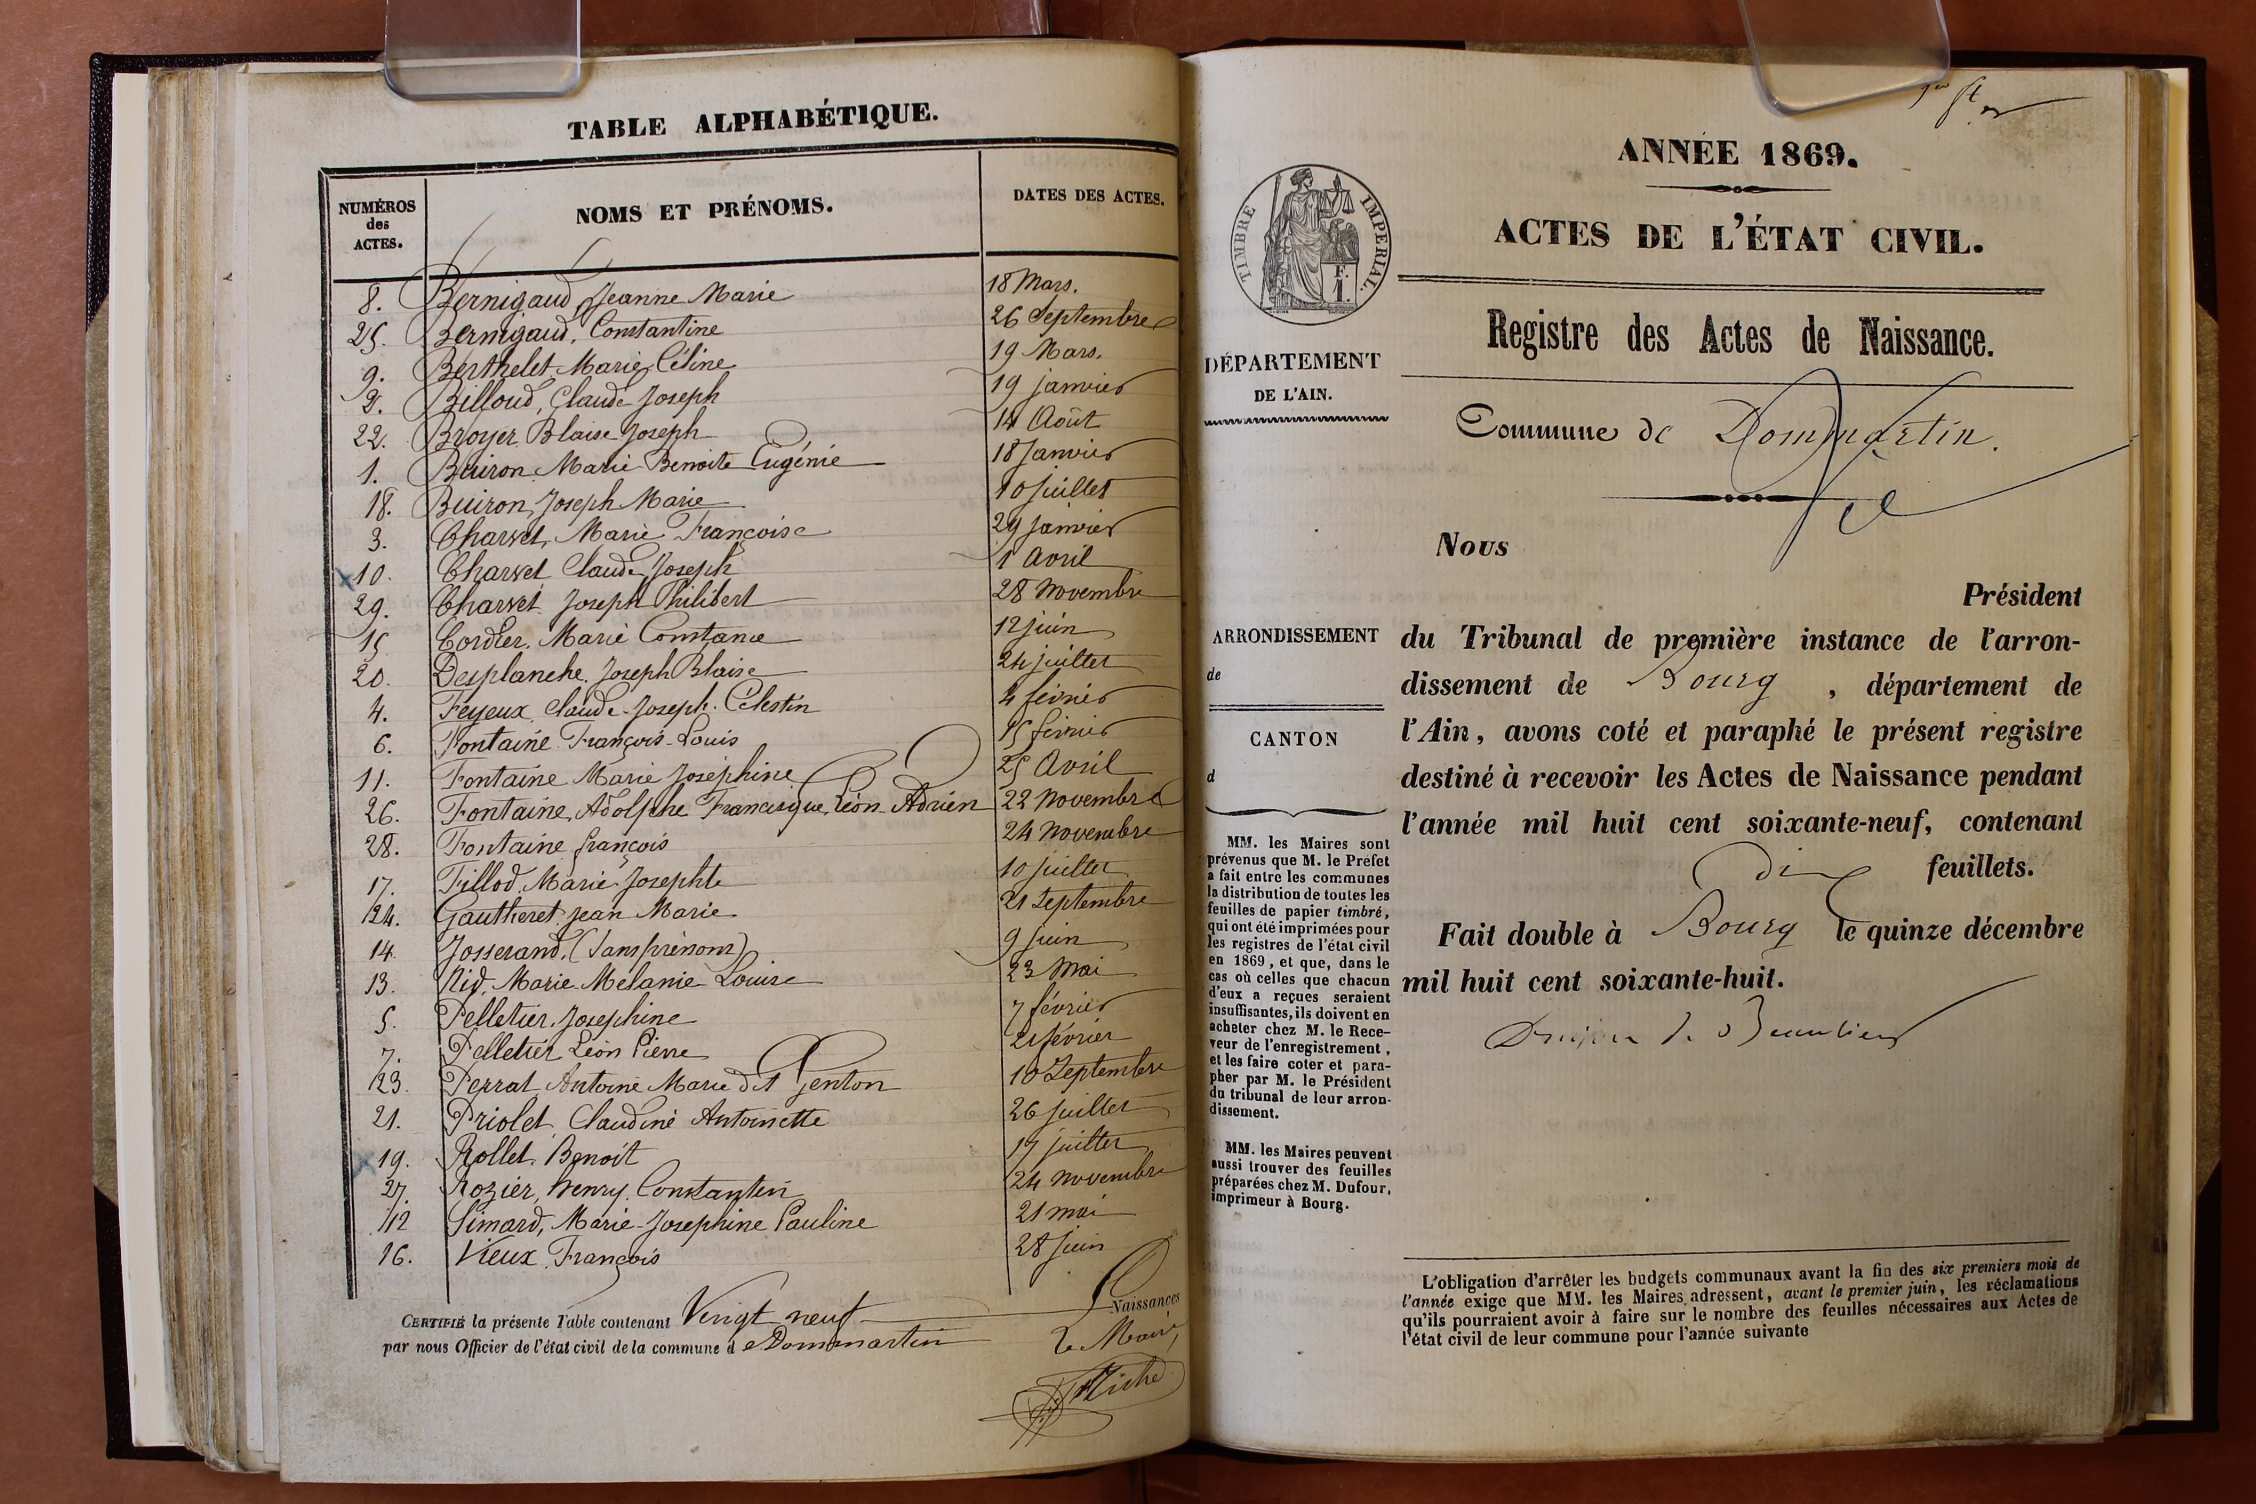 TABLE ALPHABÉTIQUE.
NUMÉROS des ACTES. NOMS ET PRÉNOMS. DATES DES ACTES.
8. Bernigaud, Jeanne Marie 18 Mars.
25. Bernigaud, Constantine 26 Septembre
9. Berthelet, Marie Céline 19 Mars.
2. Billoud, Claude Joseph 19 janvier
22. Broyer Blaise Joseph 14 Août
1. Buiron Marie Benoite Eugénie 18 Janvier
18. Buiron, Joseph Marie 10 juillet
3. Charvet, Marie Françoise 29 janvier
10. Charvet Claude Joseph 1 avril
29. Charvet Joseph Philibert 28 Novembre
15 Cordier, Marie Constance 12 juin
20. Desplanche, Joseph Blaise 24 juillet
4. Feyeux, Claude Joseph Célestin 4 février
6. Fontaine François-Louis 15 février
11. Fontaine Marie Joséphine 25 Avril
26. Fontaine, Adolphe Francisque, Léon Adrien 22 Novembre
28. Fontaine françois 24 Novembre
17. Fillod, Marie Josephte 10 juillet
24. Gautheret Jean Marie 21 Septembre
14. Josserand, (Sans prénoms) 9 juin
13. Nid, Marie Mélanie Louise 23 Mai
5. Pelletier, Josephine 7 février
7. Pelletier Léon Pierre 21 février
23. Perrat Antoine Marie dit Genton 10 Septembre
21. Priolet Claudine Antoinette 26 juillet
19. Rollet, Benoit 17 juillet
27. Rozier, henry Constantin 24 novembre
12 Simard, Marie-Josephine Pauline 21 mai
16. Vieux François 28 juin
CERTIFIÉ la présente Table contenant Vingt neuf Naissances
par nous Officier de l'état civil de la commune de Dommartin
Le Maire,
ANNÉE 1869.
ACTES DE L'ÉTAT CIVIL.
TIMBRE IMPERIAL.
1 F.
Registre des Actes de Naissance.
DÉPARTEMENT
DE L'AIN.
Commune de Dommartin.
Nous
Président
du Tribunal de première instance de l'arron-
dissement de Bourg, département de
l'Ain, avons coté et paraphé le présent registre
destiné à recevoir les Actes de Naissance pendant
l'année mil huit cent soixante-neuf, contenant
dix feuillets.
Fait double à Bourg le quinze décembre
mil huit cent soixante-huit.
ARRONDISSEMENT
de
CANTON
d
MM. les Maires sont
prévenus que M. le Préfet
a fait entre les communes
la distribution de toutes les
feuilles de papier timbré,
qui ont été imprimées pour
les registres de l'état civil
en 1869, et que, dans le
cas où celles que chacun
d'eux a reçues seraient
insuffisantes, ils doivent en
acheter chez M. le Rece-
veur de l'enregistrement,
et les faire coter et para-
pher par M. le Président
du tribunal de leur arron-
dissement.
MM. les Maires peuvent
aussi trouver des feuilles
préparées chez M. Dufour,
imprimeur à Bourg.
L'obligation d'arrêter les budgets communaux avant la fin des six premiers mois de
l'année exige que MM. les Maires adressent, avant le premier juin, les réclamations
qu'ils pourraient avoir à faire sur le nombre des feuilles nécessaires aux Actes de
l'état civil de leur commune pour l'année suivante